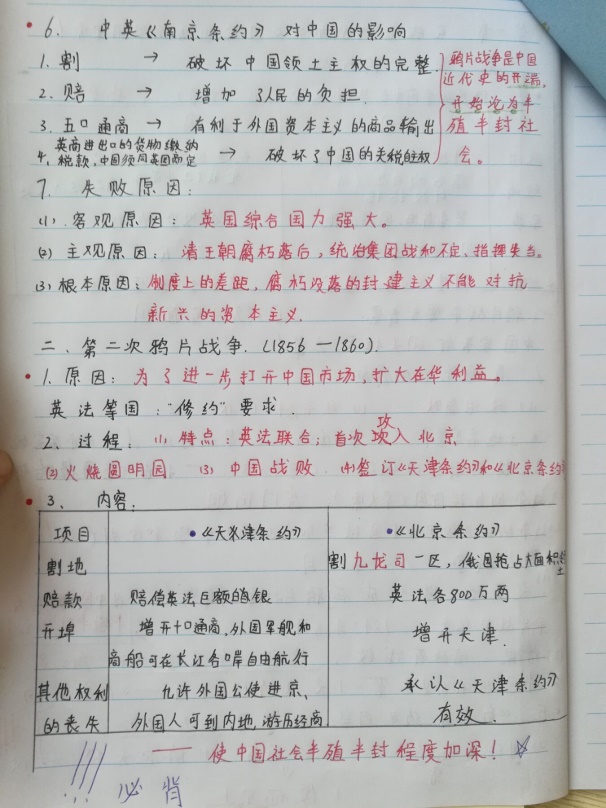 6. 中英《南京条约》对中国的影响
1. 割 → 破坏中国领土主权的完整
2. 赔 → 增加了人民的负担.
3. 五口通商 → 有利于外国资本主义的商品输出
4. 英商进出口的货物缴纳
税款,中国须同英国商定 → 破坏了中国的关税自主权
鸦片战争是中国
近代史的开端,
开始沦为半
殖半封社
会。
7. 失败原因:
(1). 客观原因: 英国综合国力强大。
(2) 主观原因: 清王朝腐朽落后,统治集团战和不定、指挥失当。
(3) 根本原因: 制度上的差距,腐朽没落的封建主义不能对抗
新兴的资本主义.
二、第二次鸦片战争.(1856—1860).
1. 原因: 为了进一步打开中国市场,扩大在华利益。
英法等国:“修约”要求.
2、过程: (1) 特点: 英法联合; 首次攻入北京
(2) 火烧圆明园 (3) 中国战败 (4) 签订《天津条约》和《北京条约
3、内容.
项目 《天津条约》 《北京条约》
割地 割九龙司一区,俄国抢占大面积领土
赔款 赔偿英法巨额白银 英法各800万两
开埠 增开十口通商,外国军舰和 增开天津.
商船可在长江各口岸自由航行
其他权利 允许外国公使进京、 承认《天津条约》
的丧失 外国人可到内地游历经商 有效.
—— 使中国社会半殖半封程度加深!
!!! 必背